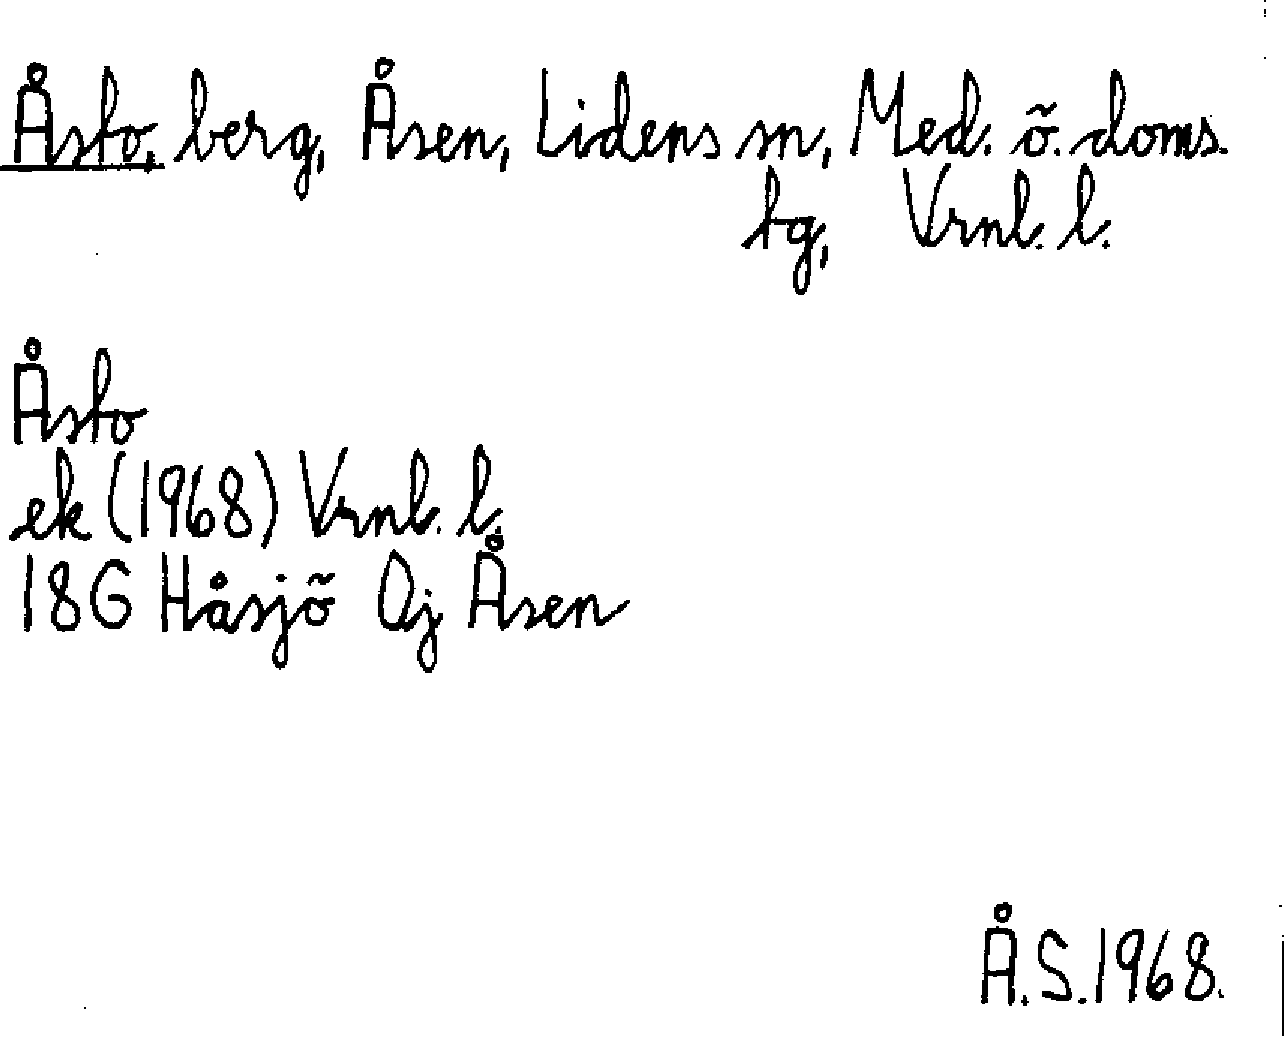 Åsto, berg, Åsen, Lidens sn, Med. ö. doms.
tg, Vrnl. l.
Åsto
ek (1968) Vrnl. l.
18G Håsjö 0j Åsen
Å.S.1968.